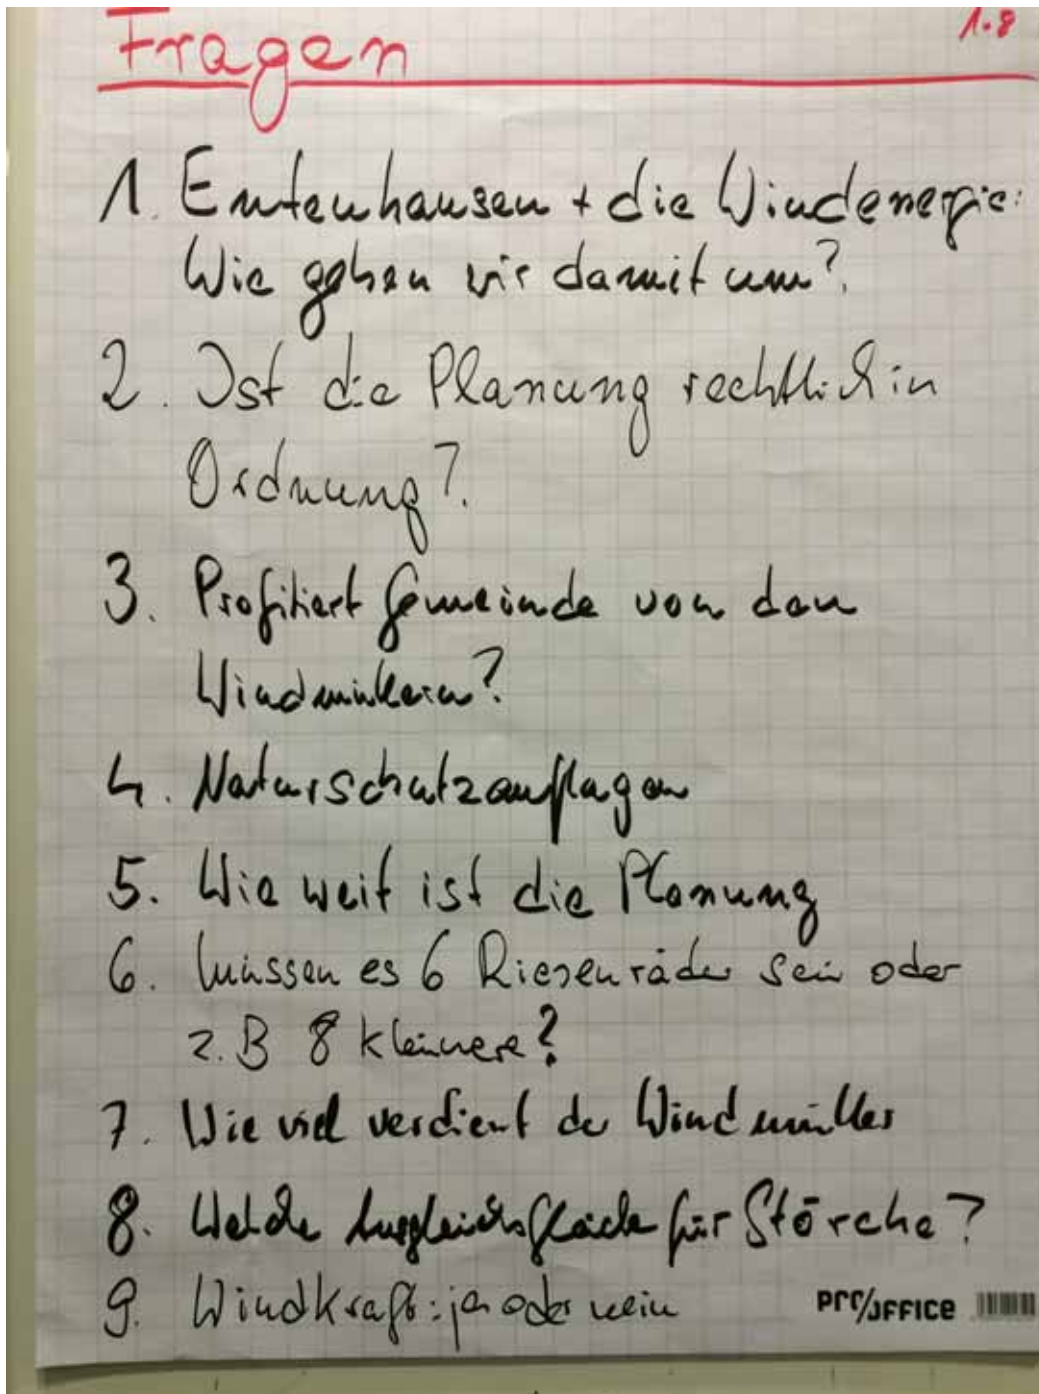 Fragen
1.8
1. Entenhausen + die Windenergie:
Wie gehen wir damit um?
2. Ist die Planung rechtlich in
Ordnung?
3. Profitiert Gemeinde von den
Windmüllern?
4. Naturschutzauflagen
5. Wie weit ist die Planung
6. Müssen es 6 Riesenräder sein oder
z.B 8 kleinere?
7. Wie viel verdient der Windmüller
8. Welche Ausgleichsfläche für Störche?
9. Windkraft: ja oder nein
PRO/OFFICE